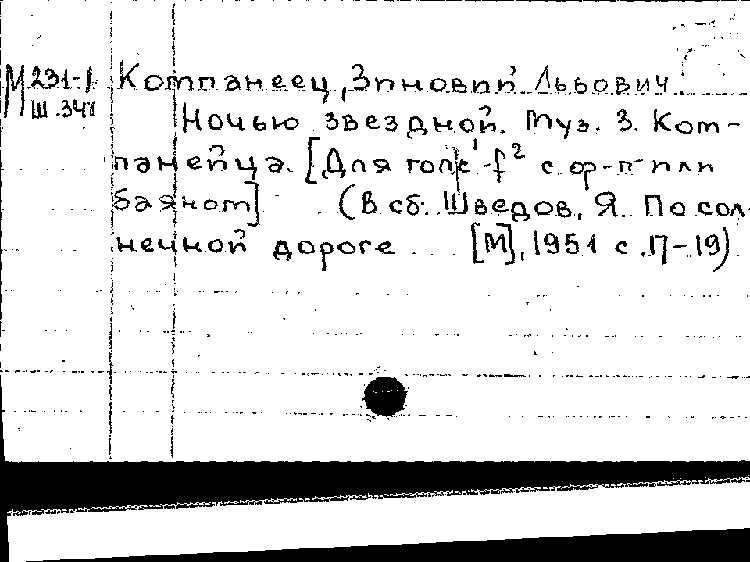 М 231-1 Компанеец, Зиновий Львович.
Ш.347 Ночью звездной. Муз. З. Ком-
панейца. [Для голс' -f² с ф-п или
баяном] (В сб. Шведов, Я. По сол-
нечной дороге [М], 1951 с.17-19)